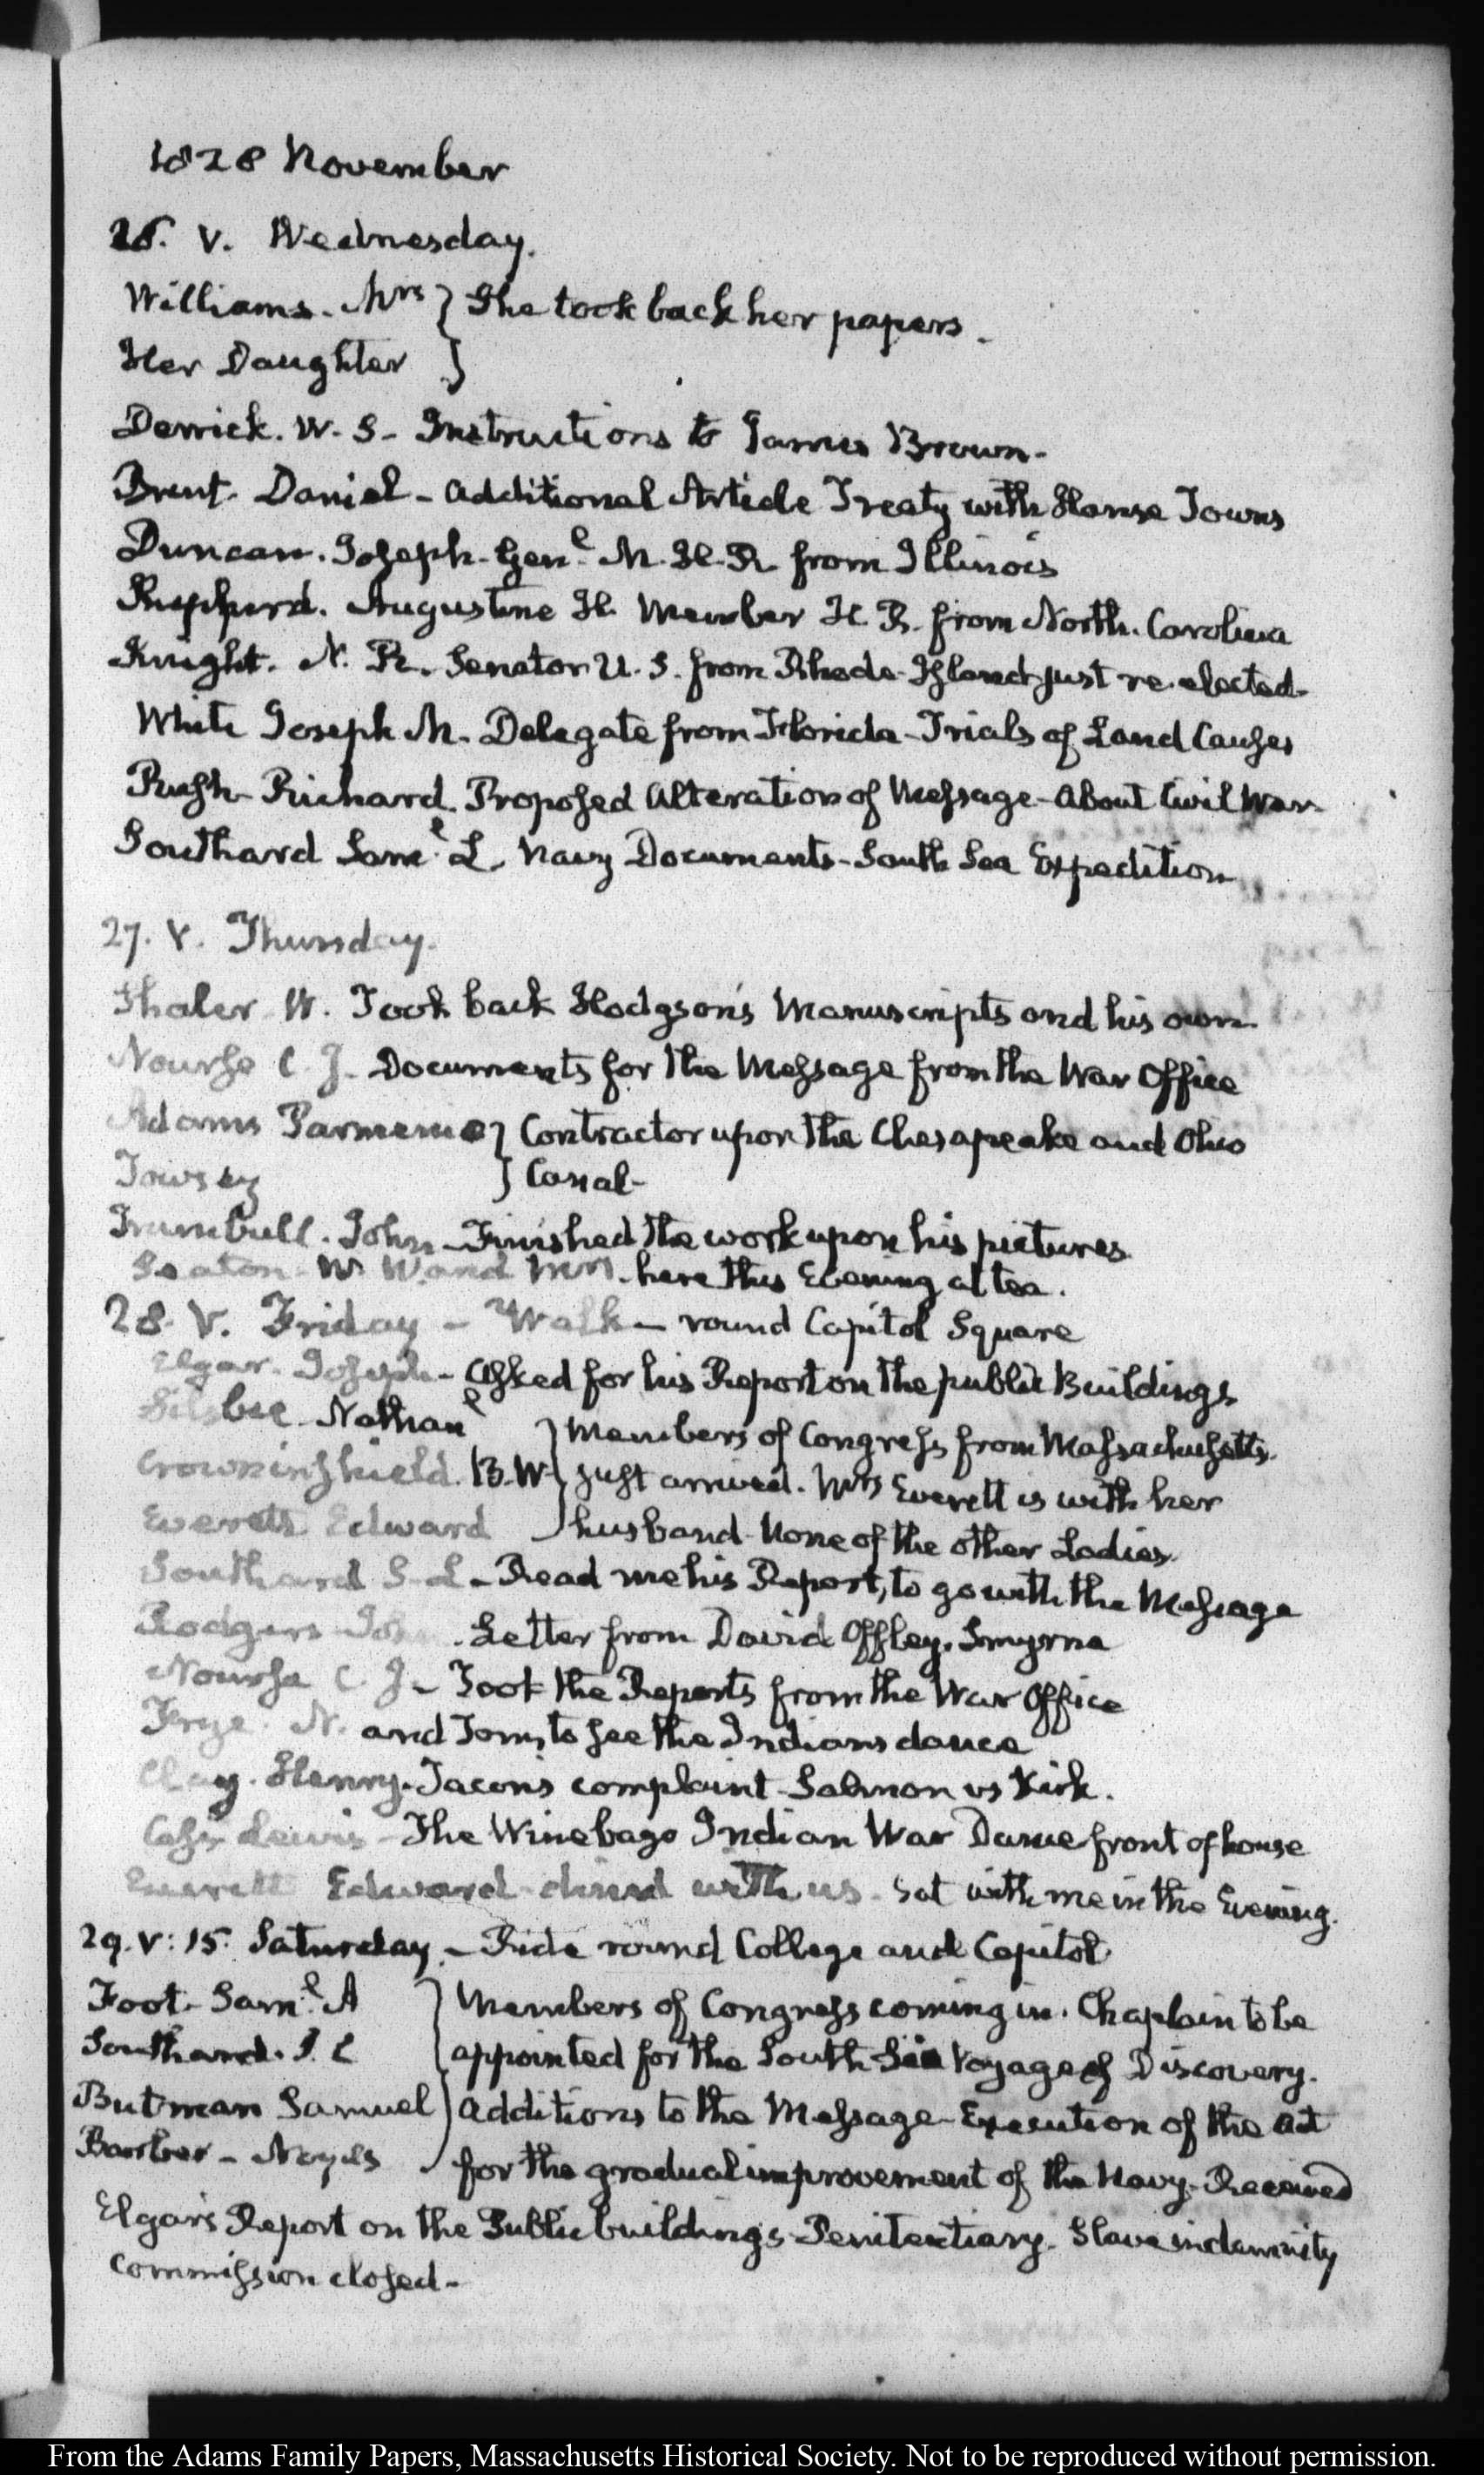 1828 November
26. V. Wednesday.
Williams. Mrs } She took back her papers.
Her Daughter }
Derrick. W. S- Instructions to James Brown-
Brent. Daniel- Additional Article Treaty with Hanse Towns
Duncan. Joseph- Genl. M. H. R. from Illinois
Shepherd. Augustine H. Member H. R. from North. Carolina
Knight. N. R. Senator U. S. from Rhode-Island just re.elected-
White Joseph M. Delegate from Florida- Trials of Land Causes
Rush- Richard. Proposed Alteration of Message- About Civil War
Southard Saml. L. Navy Documents- South Sea Expedition
27. V. Thursday.
Shaler W. Took back Hodgson's Manuscripts and his own.
Nourse C. J. Documents for the Message from the War Office
Adams Parmenio } Contractor upon the Chesapeake and Ohio
Towsey } Canal-
Trumbull. John- Finished the work upon his pictures
Seaton- W. W. and Mrs. here this Evening at tea.
28. V. Friday- Walk- round Capitol Square
Elgar. Joseph- Asked for his Report on the public Buildings
Silsbee Nathanl } Members of Congress from Massachusetts.
Crowninshield. B. W. } just arrived. Mrs Everett is with her
Everett Edward } husband- None of the other Ladies.
Southard S. L- Read me his Report, to go with the Message
Rodgers John. Letter from David Offley. Smyrna
Nourse C. J- Took the Reports from the War Office
Frye. N. and Tom, to see the Indians dance
Clay. Henry. Tacon's complaint- Salmon vs Kirk.
Cass Lewis- The Winebago Indian War Dance front of house
Everett Edward- dined with us. Sat with me in the Evening.
29. V: 15. Saturday.- Ride round College and Capitol
Foot- Saml. A } Members of Congress coming in. Chaplain to be
Southard. S. L } appointed for the South Sea Voyage of Discovery.
Butman Samuel } Additions to the Message- Execution of the Act
Barber- Noyes } for the gradual improvement of the Navy- Received
Elgar's Report on the Public buildings- Penitentiary. Slave indemnity
Commission closed-
From the Adams Family Papers, Massachusetts Historical Society. Not to be reproduced without permission.